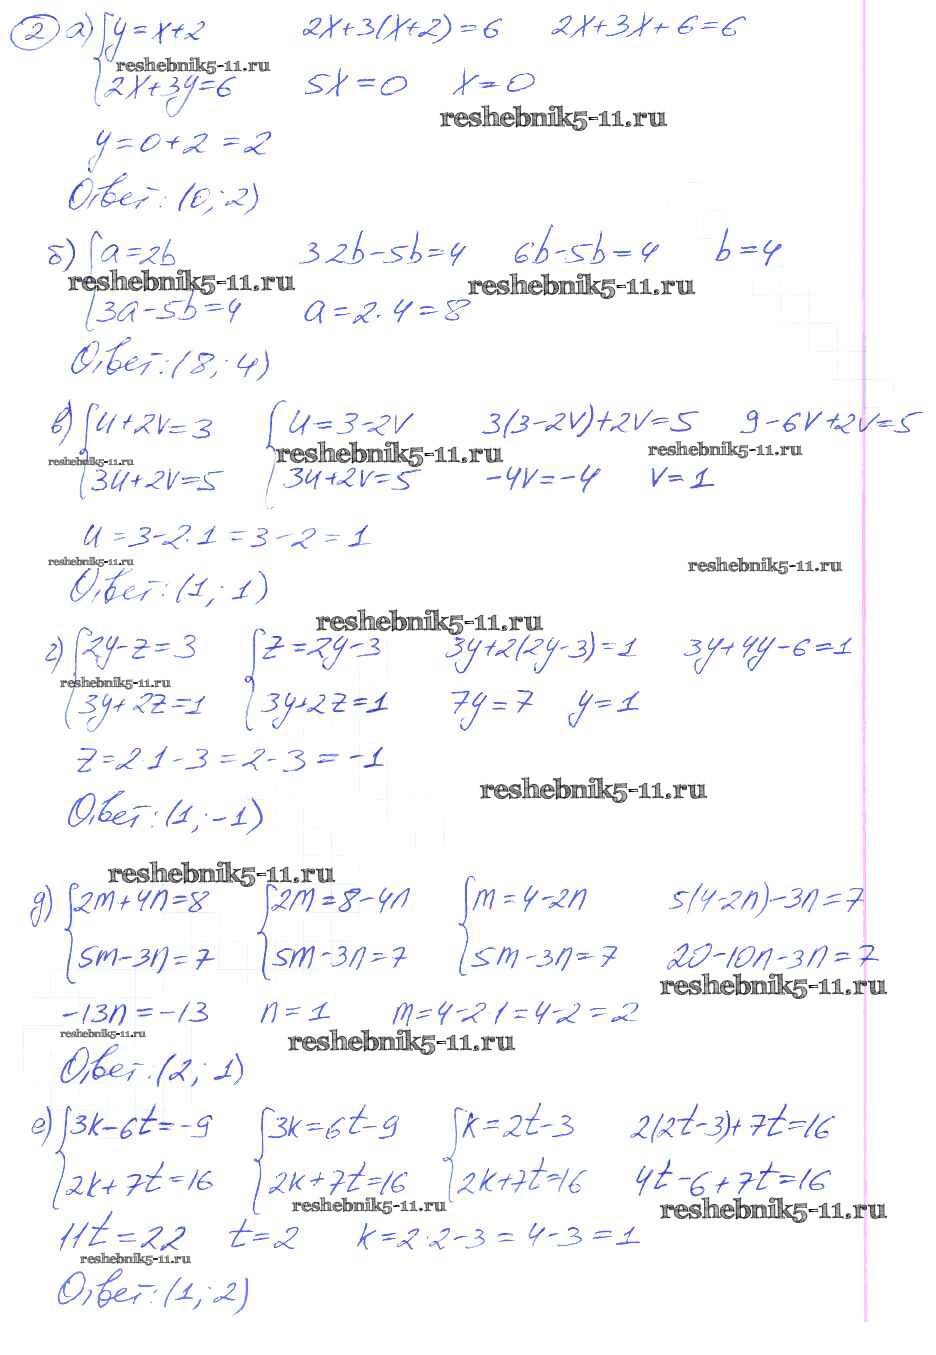 2 а) { y = x+2   2x+3(x+2)=6   2x+3x+6=6
reshebnik5-11.ru
2x+3y=6   5x=0   x=0
reshebnik5-11.ru
y=0+2=2
Ответ: (0; 2)
б) { a=2b   3 2b-5b=4   6b-5b=4   b=4
reshebnik5-11.ru   reshebnik5-11.ru
3a-5b=4   a=2·4=8
Ответ: (8; 4)
в) { u+2v=3   { u=3-2v   3(3-2v)+2v=5   9-6v+2v=5
reshebnik5-11.ru   reshebnik5-11.ru   reshebnik5-11.ru
3u+2v=5   3u+2v=5   -4v=-4   v=1
u=3-2·1=3-2=1
reshebnik5-11.ru   reshebnik5-11.ru
Ответ: (1; 1)
reshebnik5-11.ru
г) { 2y-z=3   { z=2y-3   3y+2(2y-3)=1   3y+4y-6=1
reshebnik5-11.ru
3y+2z=1   3y+2z=1   7y=7   y=1
z=2·1-3=2-3=-1
reshebnik5-11.ru
Ответ: (1; -1)
reshebnik5-11.ru
д) { 2m+4n=8   { 2m=8-4n   { m=4-2n   5(4-2n)-3n=7
5m-3n=7   5m-3n=7   5m-3n=7   20-10n-3n=7
reshebnik5-11.ru
-13n=-13   n=1   m=4-2·1=4-2=2
reshebnik5-11.ru   reshebnik5-11.ru
Ответ: (2; 1)
е) { 3k-6t=-9   { 3k=6t-9   { k=2t-3   2(2t-3)+7t=16
2k+7t=16   2k+7t=16   2k+7t=16   4t-6+7t=16
reshebnik5-11.ru   reshebnik5-11.ru
11t=22   t=2   k=2·2-3=4-3=1
reshebnik5-11.ru
Ответ: (1; 2)